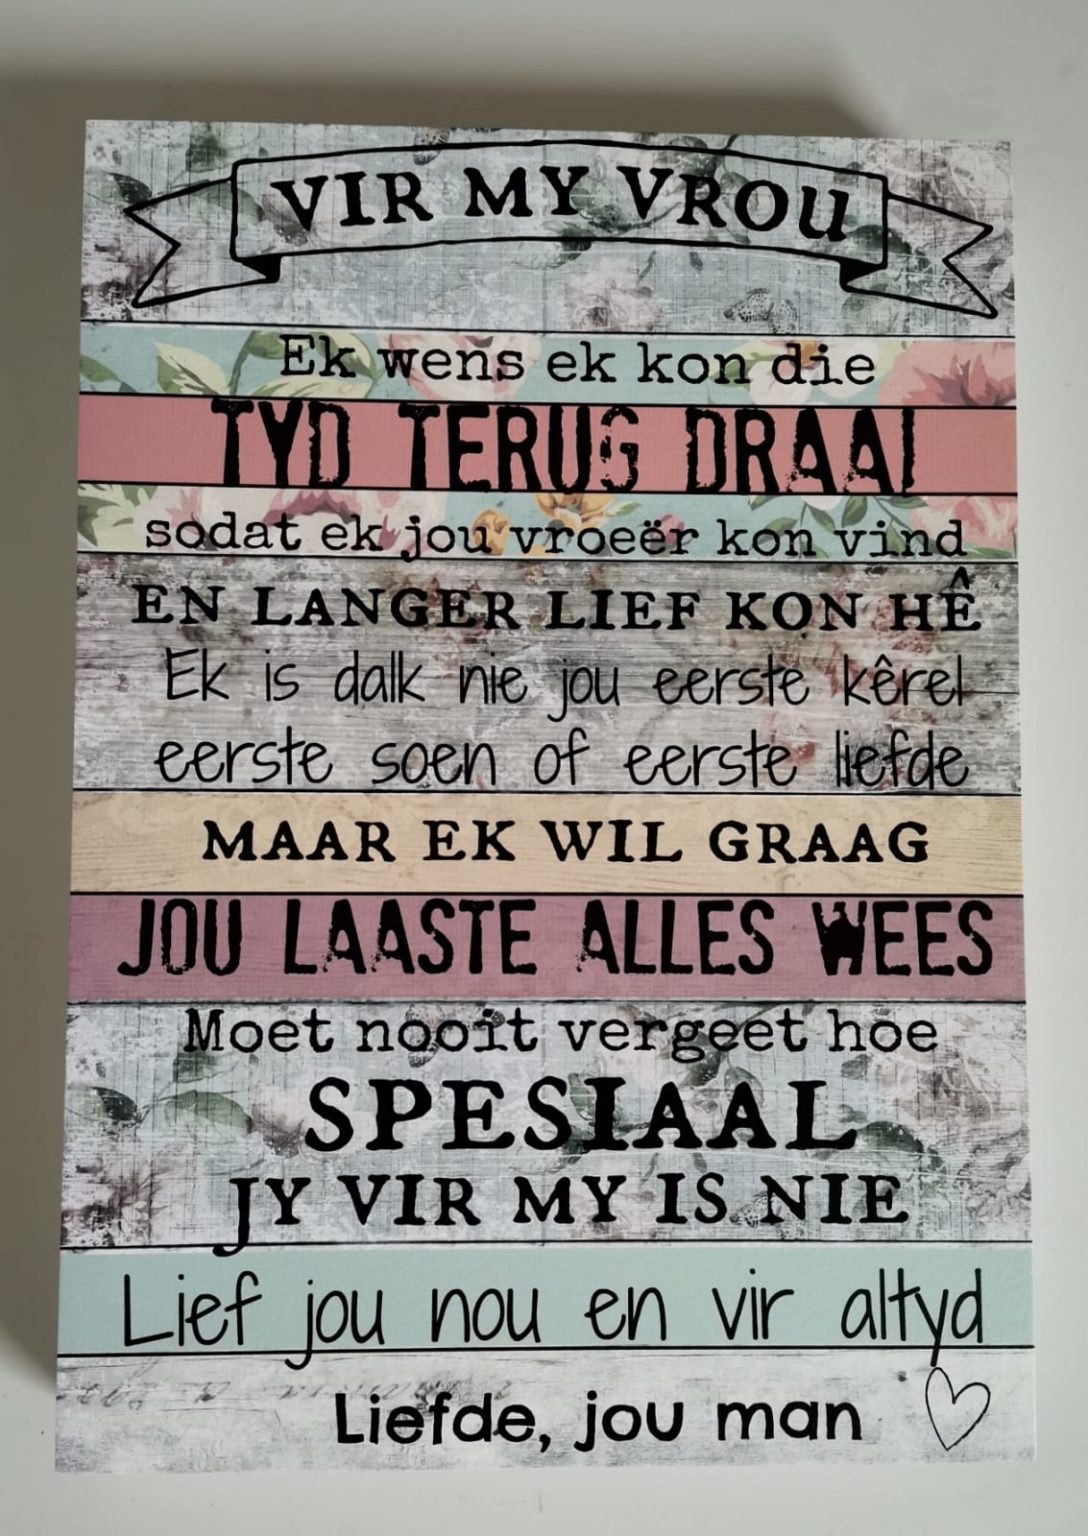 VIR MY VROU
Ek wens ek kon die
TYD TERUG DRAAI
sodat ek jou vroeër kon vind
EN LANGER LIEF KON HÊ
Ek is dalk nie jou eerste kêrel
eerste soen of eerste liefde
MAAR EK WIL GRAAG
JOU LAASTE ALLES WEES
Moet nooit vergeet hoe
SPESIAAL
JY VIR MY IS NIE
Lief jou nou en vir altyd
Liefde, jou man